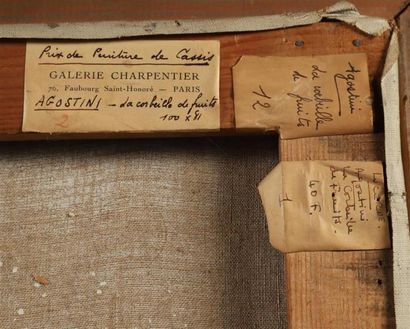 Prix de Peinture de Cassis
GALERIE CHARPENTIER
76, Faubourg Saint-Honoré — PARIS
AGOSTINI — La corbeille de fruits
100 x 81
2
Agostini
La corbeille
de fruits
12
Agostini
La Corbeille
de fruits.
40 F.
1